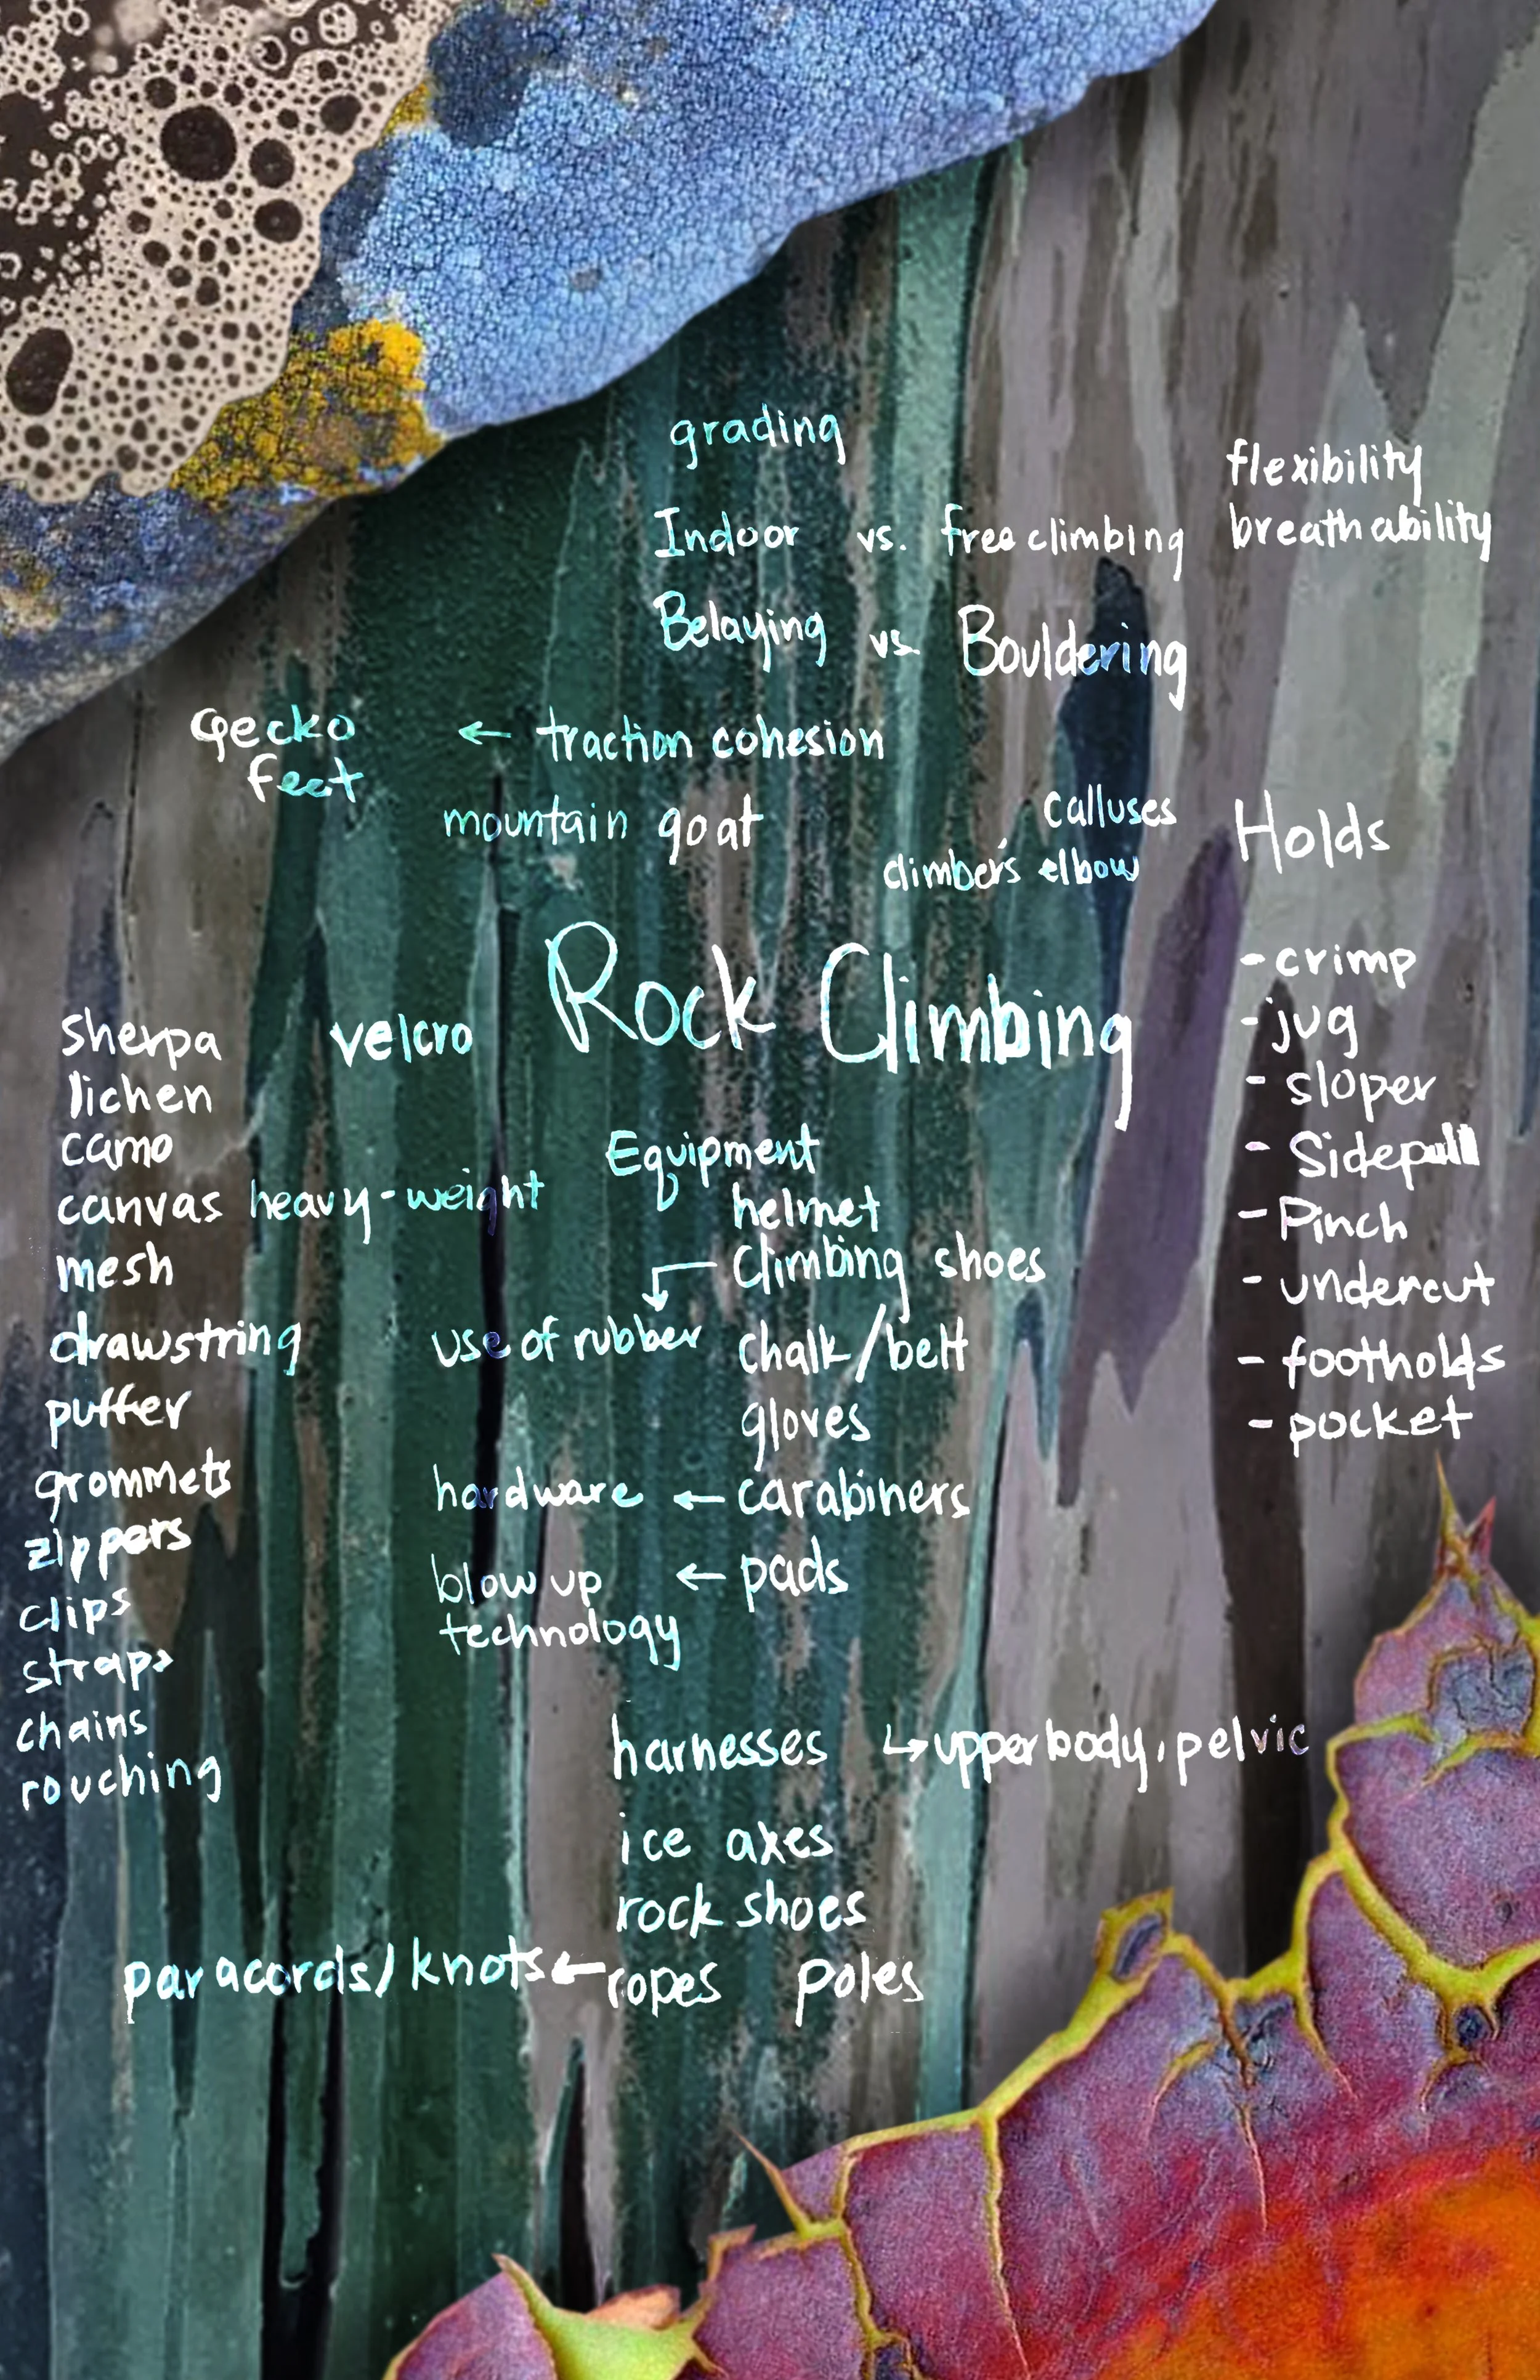 grading
Indoor vs. free climbing
Belaying vs. Bouldering
flexibility
breathability
Gecko feet ← traction cohesion
mountain goat
calluses
climber's elbow
Rock Climbing
velcro
sherpa
lichen
camo
canvas heavy-weight
mesh
drawstring
puffer
grommets
zippers
clips
straps
chains
rouching
Equipment
helmet
climbing shoes
use of rubber
chalk/belt
gloves
hardware ← carabiners
blow up technology ← pads
harnesses ↳ upperbody, pelvic
ice axes
rock shoes
paracords/knots ← ropes poles
Holds
- crimp
- jug
- sloper
- Sidepull
- Pinch
- undercut
- footholds
- pocket